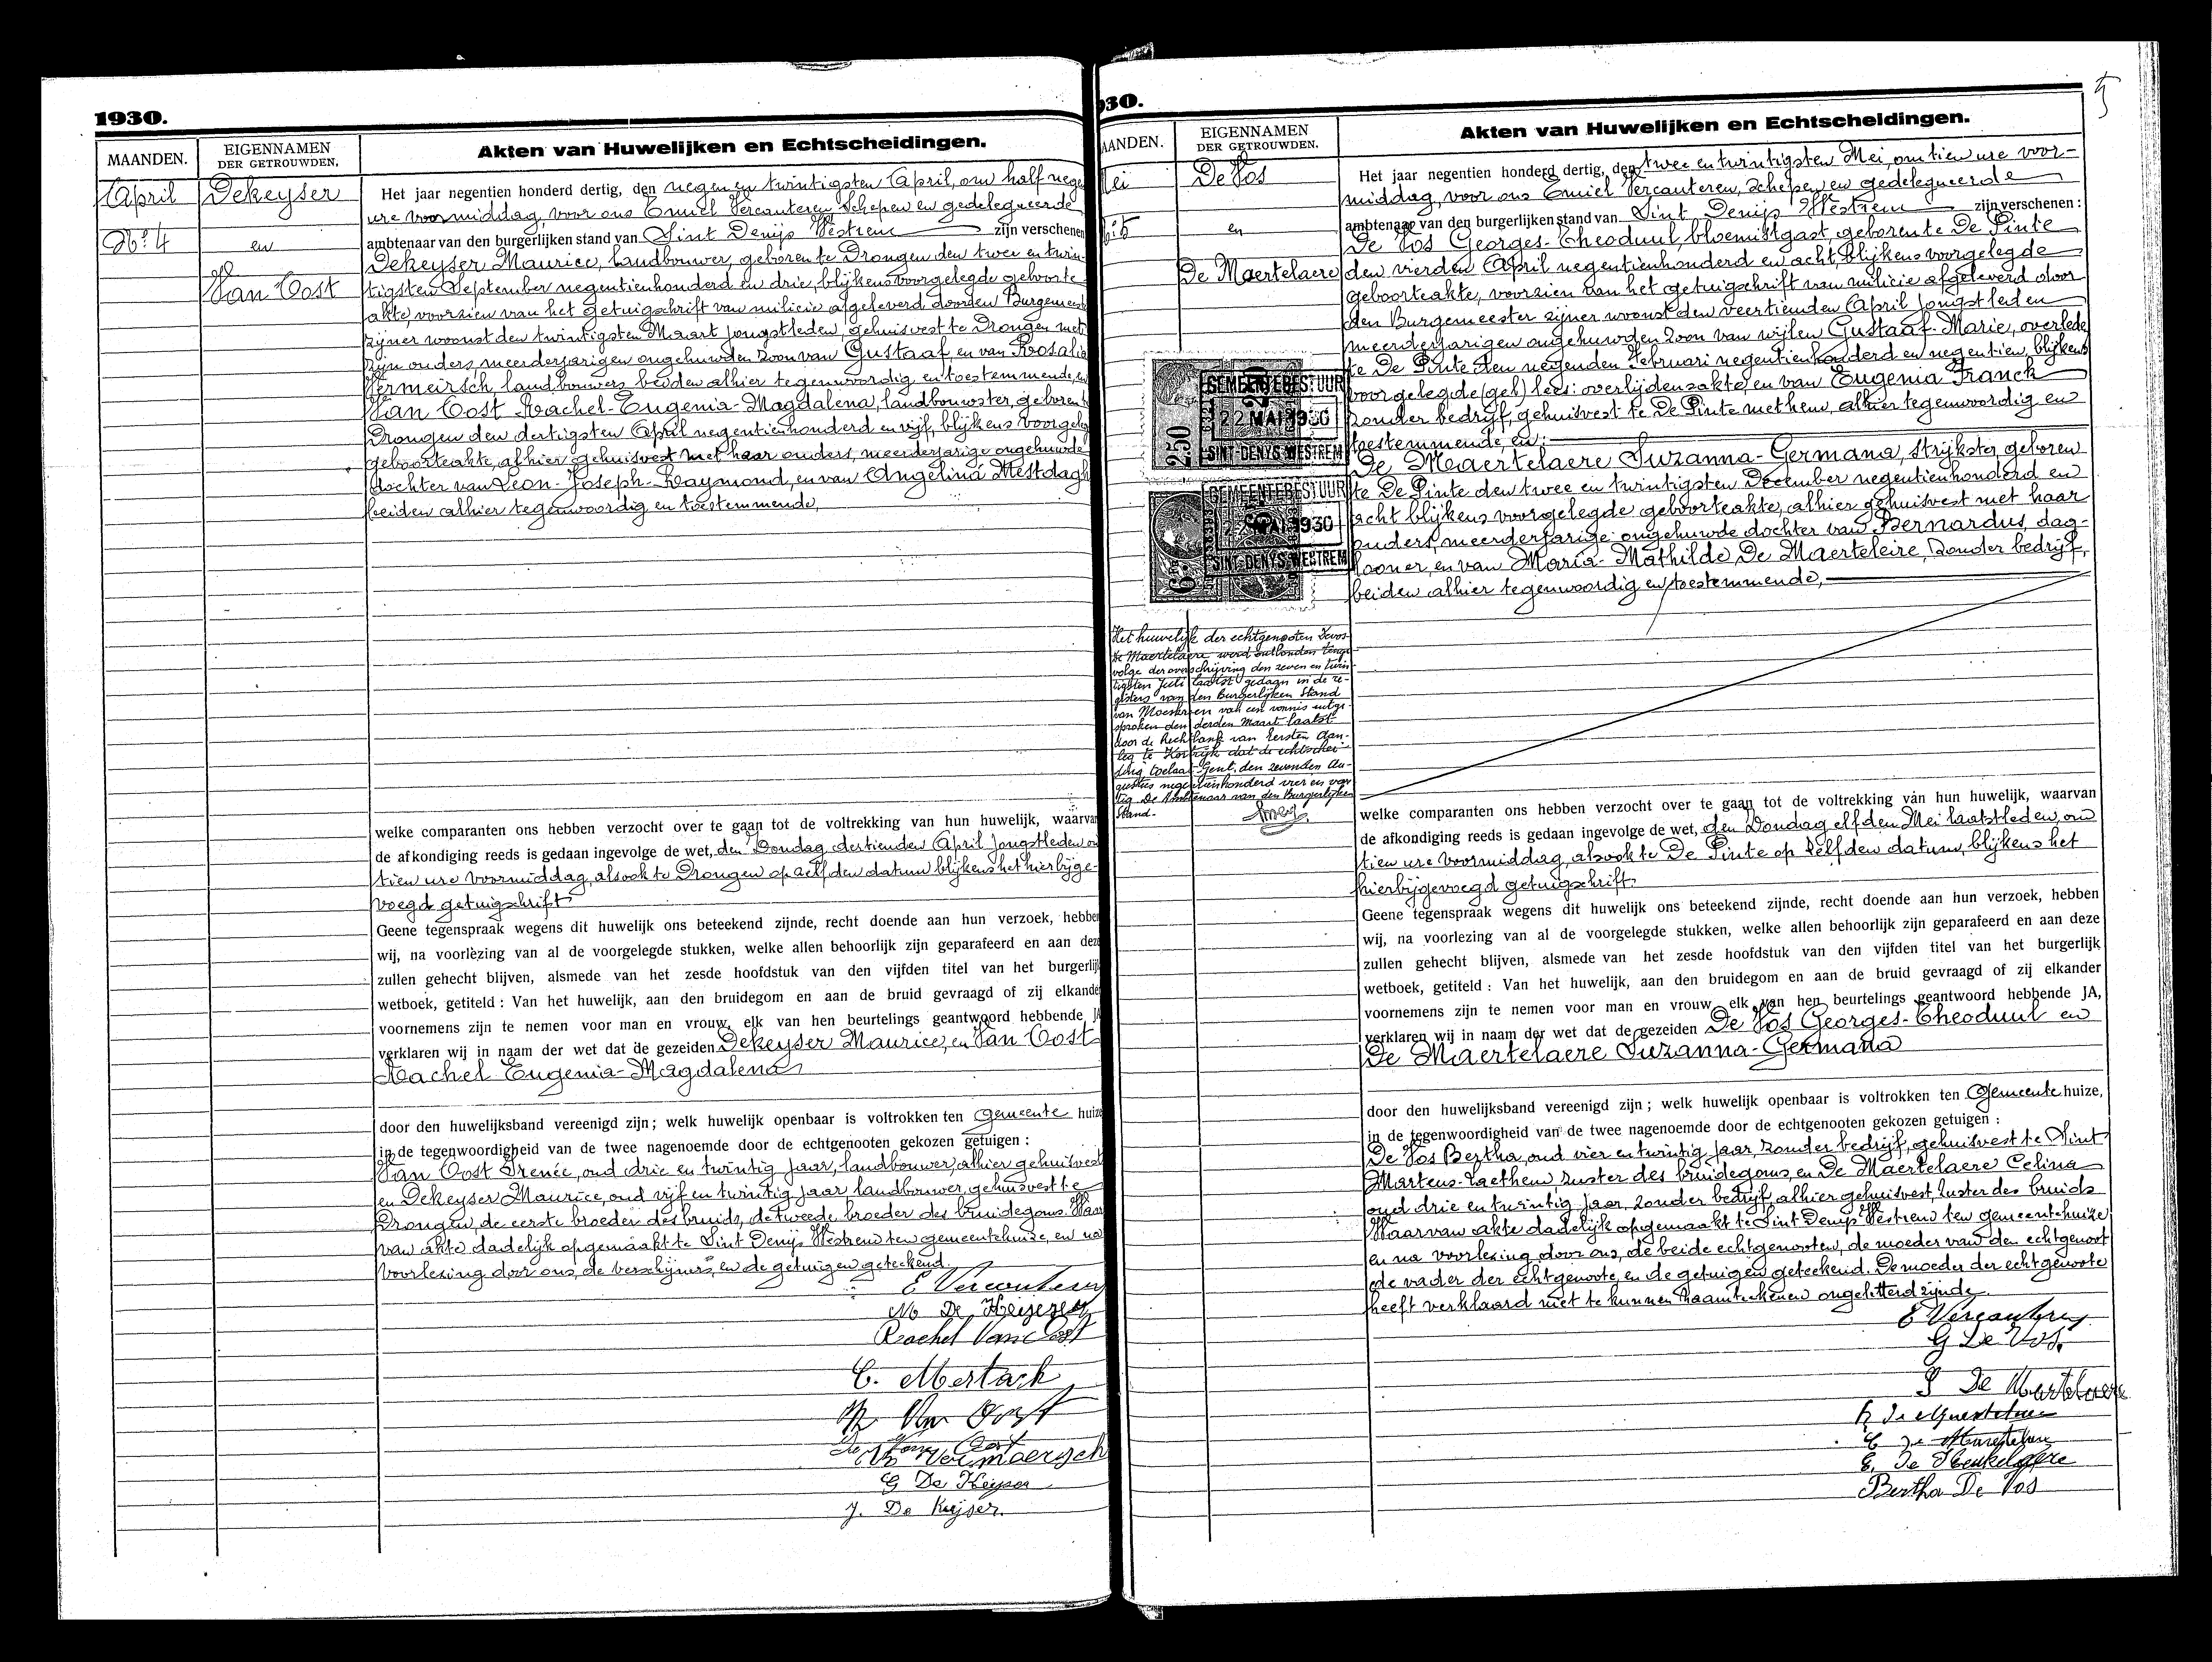 1930.
MAANDEN.
EIGENNAMEN
DER GETROUWDEN.
Akten van Huwelijken en Echtscheidingen.
April
Dekeyser
No. 4
en
Van Oost
Het jaar negentien honderd dertig, den negen en twintigsten April, om half nege
ure voormiddag, voor ons Emiel Vercauteren, Schepen en gedelegueerde
ambtenaar van den burgerlijken stand van Sint Denijs Westrem zijn verschenen
Dekeyser Maurice, landbouwer, geboren te Drongen den twee en twin-
tigsten September negentienhonderd en drie, blijkens voorgelegde geboorte-
akte, voorzien van het getuigschrift van milicie afgeleverd door den Burgemeest
zijner woonst den twintigsten Maart jongstleden, gehuisvest te Drongen met
zijn ouders, meerderjarigen ongehuwden zoon van Gustaaf, en van Rosalia
Vermeirsch, landbouwers, beiden alhier tegenwoordig en toestemmende, en
Van Oost Rachel-Eugenia-Magdalena, landbouwster, geboren t
Drongen den dertigsten April negentienhonderd en vijf, blijkens voorgeleg
geboorteakte, alhier gehuisvest met haar ouders, meerderjarige ongehuwde
dochter van Leon-Joseph-Raymond, en van Angelina Mestdagh
beiden alhier tegenwoordig en toestemmende,
welke comparanten ons hebben verzocht over te gaan tot de voltrekking van hun huwelijk, waarvan
de afkondiging reeds is gedaan ingevolge de wet, den Zondag dertienden April jongstleden om
tien ure voormiddag, alsook te Drongen op zelfden datum blijkens het hierbijge-
voegd getuigschrift
Geene tegenspraak wegens dit huwelijk ons beteekend zijnde, recht doende aan hun verzoek, hebben
wij, na voorlezing van al de voorgelegde stukken, welke allen behoorlijk zijn geparafeerd en aan deze
zullen gehecht blijven, alsmede van het zesde hoofdstuk van den vijfden titel van het burgerlijk
wetboek, getiteld : Van het huwelijk, aan den bruidegom en aan de bruid gevraagd of zij elkander
voornemens zijn te nemen voor man en vrouw, elk van hen beurtelings geantwoord hebbende JA
verklaren wij in naam der wet dat de gezeiden Dekeyser Maurice, en Van Oost
Rachel Eugenia-Magdalena
door den huwelijksband vereenigd zijn ; welk huwelijk openbaar is voltrokken ten Gemeente huize
in de tegenwoordigheid van de twee nagenoemde door de echtgenooten gekozen getuigen :
Van Oost Irenée, oud drie en twintig jaar, landbouwer, alhier gehuisvest
en Dekeyser Maurice, oud vijf en twintig jaar landbouwer, gehuisvest te
Drongen, de eerste broeder des bruids, de tweede broeder des bruidegoms. Waar
van akte dadelijk opgemaakt te Sint Denijs Westrem ten gemeentehuize, en na
voorlezing door ons, de verschijners, en de getuigen geteekend.
E Vercauteren
M De Keijser
Rachel Van Oost
Van Oost
Vermaersch
G De Keyser
J. De Keijser.
930.
AANDEN.
EIGENNAMEN
DER GETROUWDEN.
Akten van Huwelijken en Echtscheidingen.
5
Mei
De Vos
No. 5
en
De Maertelaere
Het jaar negentien honderd dertig, den twee en twintigsten Mei, om tien ure voor-
middag, voor ons Emiel Vercauteren, Schepen en gedelegueerde
ambtenaar van den burgerlijken stand van Sint Denijs Westrem zijn verschenen :
De Vos Georges-Theoduul, bloemistgast, geboren te De Pinte
den vierden April negentienhonderd en acht, blijkens voorgelegde
geboorteakte, voorzien van het getuigschrift van milicie afgeleverd door
den Burgemeester zijner woonst den veertienden April jongstleden
meerderjarigen ongehuwden zoon van wijlen Gustaaf-Marie, overlede
te De Pinte den negenden Februari negentienhonderd en negentien, blijkens
voorgelegde (geb) lees: overlijdensakte, en van Eugenia Franck
zonder bedrijf, gehuisvest te De Pinte met hem, alhier tegenwoordig en
toestemmende, en:
De Maertelaere Suzanna-Germana, strijkster, geboren
te De Pinte den twee en twintigsten December negentienhonderd en
acht blijkens voorgelegde geboorteakte, alhier gehuisvest met haar
ouders, meerderjarige ongehuwde dochter van Bernardus, dag-
looner, en van Maria-Mathilde De Maerteleire, zonder bedrijf,
beiden alhier tegenwoordig en toestemmende,
GEMEENTEBESTUUR
22 MAI 1930
SINT-DENYS-WESTREM
2.50
GEMEENTEBESTUUR
22 MAI 1930
SINT-DENYS-WESTREM
Het huwelijk der echtgenooten Devos-
De Maertelaere werd ontbonden tenge-
volge der overschrijving den zeven en twin-
tigsten Juli laatst gedaan in de re-
gisters van den Burgerlijken Stand
van Moeskroen van een vonnis uitge-
sproken den derden Maart laatst
door de Rechtbank van Eersten Aan-
leg te Kortrijk dat de echtschei-
ding toelaat. Gent, den zevenden Au-
gustus negentienhonderd vier en veer
tig. De Ambtenaar van den Burgerlijken
Stand.
welke comparanten ons hebben verzocht over te gaan tot de voltrekking van hun huwelijk, waarvan
de afkondiging reeds is gedaan ingevolge de wet, den Zondag elfden Mei laatstleden, om
tien ure voormiddag, alsook te De Pinte op zelfden datum, blijkens het
hierbijgevoegd getuigschrift.
Geene tegenspraak wegens dit huwelijk ons beteekend zijnde, recht doende aan hun verzoek, hebben
wij, na voorlezing van al de voorgelegde stukken, welke allen behoorlijk zijn geparafeerd en aan deze
zullen gehecht blijven, alsmede van het zesde hoofdstuk van den vijfden titel van het burgerlijk
wetboek, getiteld : Van het huwelijk, aan den bruidegom en aan de bruid gevraagd of zij elkander
voornemens zijn te nemen voor man en vrouw, elk van hen beurtelings geantwoord hebbende JA,
verklaren wij in naam der wet dat de gezeiden De Vos Georges-Theoduul en
De Maertelaere Suzanna-Germana
door den huwelijksband vereenigd zijn ; welk huwelijk openbaar is voltrokken ten Gemeente huize,
in de tegenwoordigheid van de twee nagenoemde door de echtgenooten gekozen getuigen :
De Vos Bertha, oud vier en twintig jaar, zonder bedrijf, gehuisvest te Sint
Martens-Laethem, zuster des bruidegoms, en De Maertelaere Celina
oud drie en twintig jaar, zonder bedrijf, alhier gehuisvest, zuster des bruids
Waarvan akte dadelijk opgemaakt te Sint Denijs Westrem ten gemeentehuize
en na voorlezing door ons, de beide echtgenooten, de moeder van den echtgenoot
de vader der echtgenoote, en de getuigen geteekend. De moeder der echtgenoote
heeft verklaard niet te kunnen naamteekenen ongeletterd zijnde.
E Vercauteren
G De Vos.
S De Martelaere
Bertha De Vos